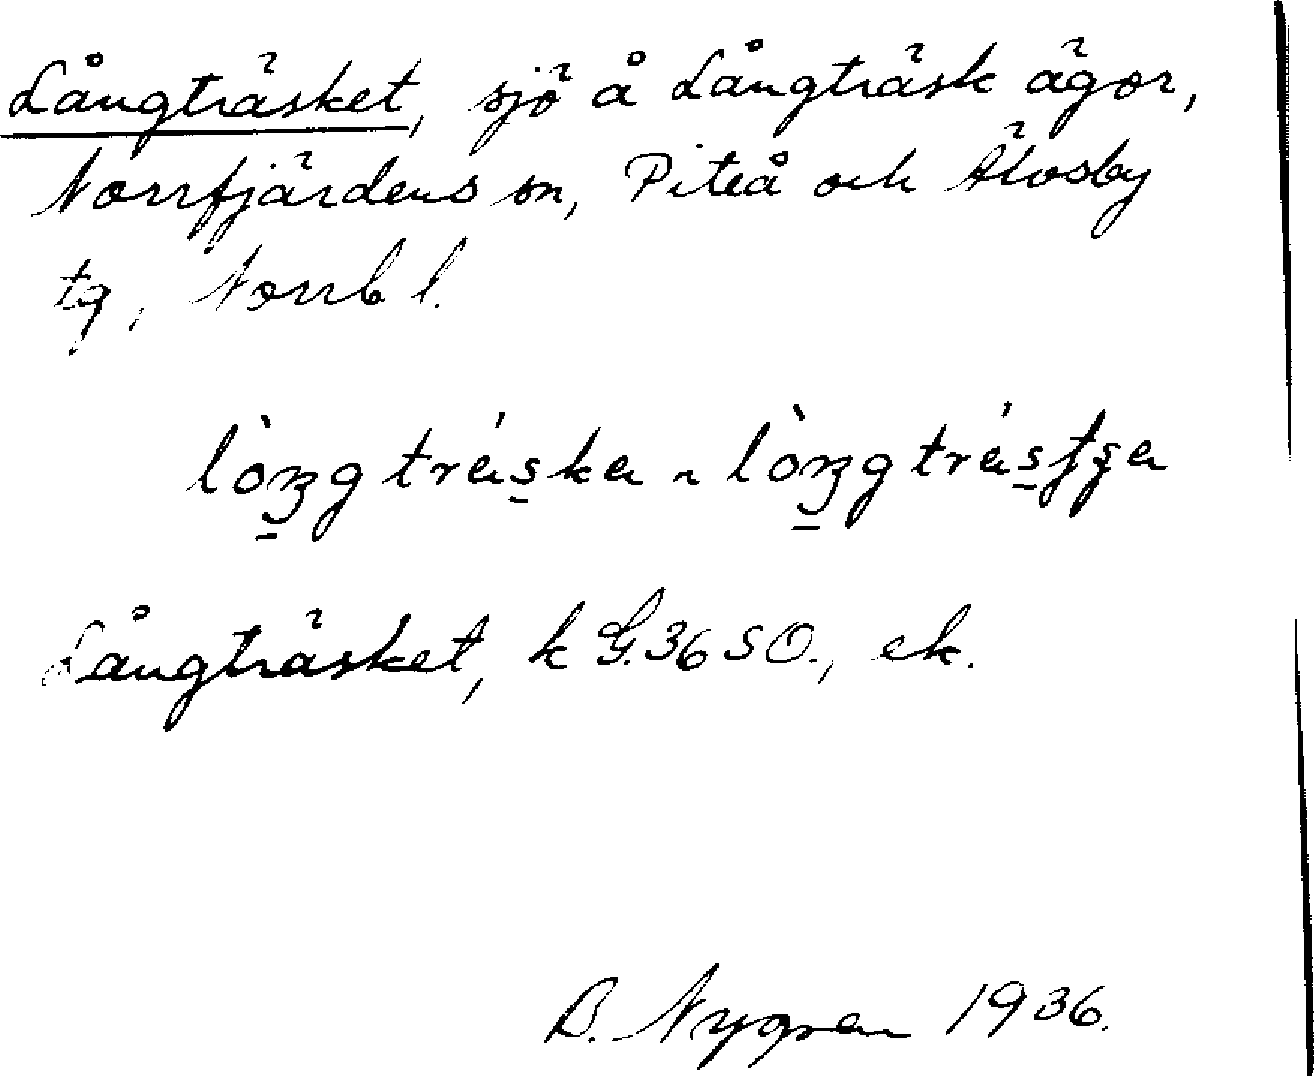 Långträsket, sjö å Långträsk ägor,
Norrfjärdens sn, Piteå och Älvsby
tg, Norrb l.
Långträsket, k G.36 SO., ek.
B. Nygren 1936.